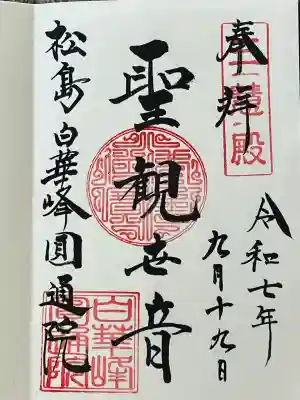 奉拝
三慧殿
令和七年
九月十九日
聖観世音
松島白華峰圓通院
白華峰
圓通院